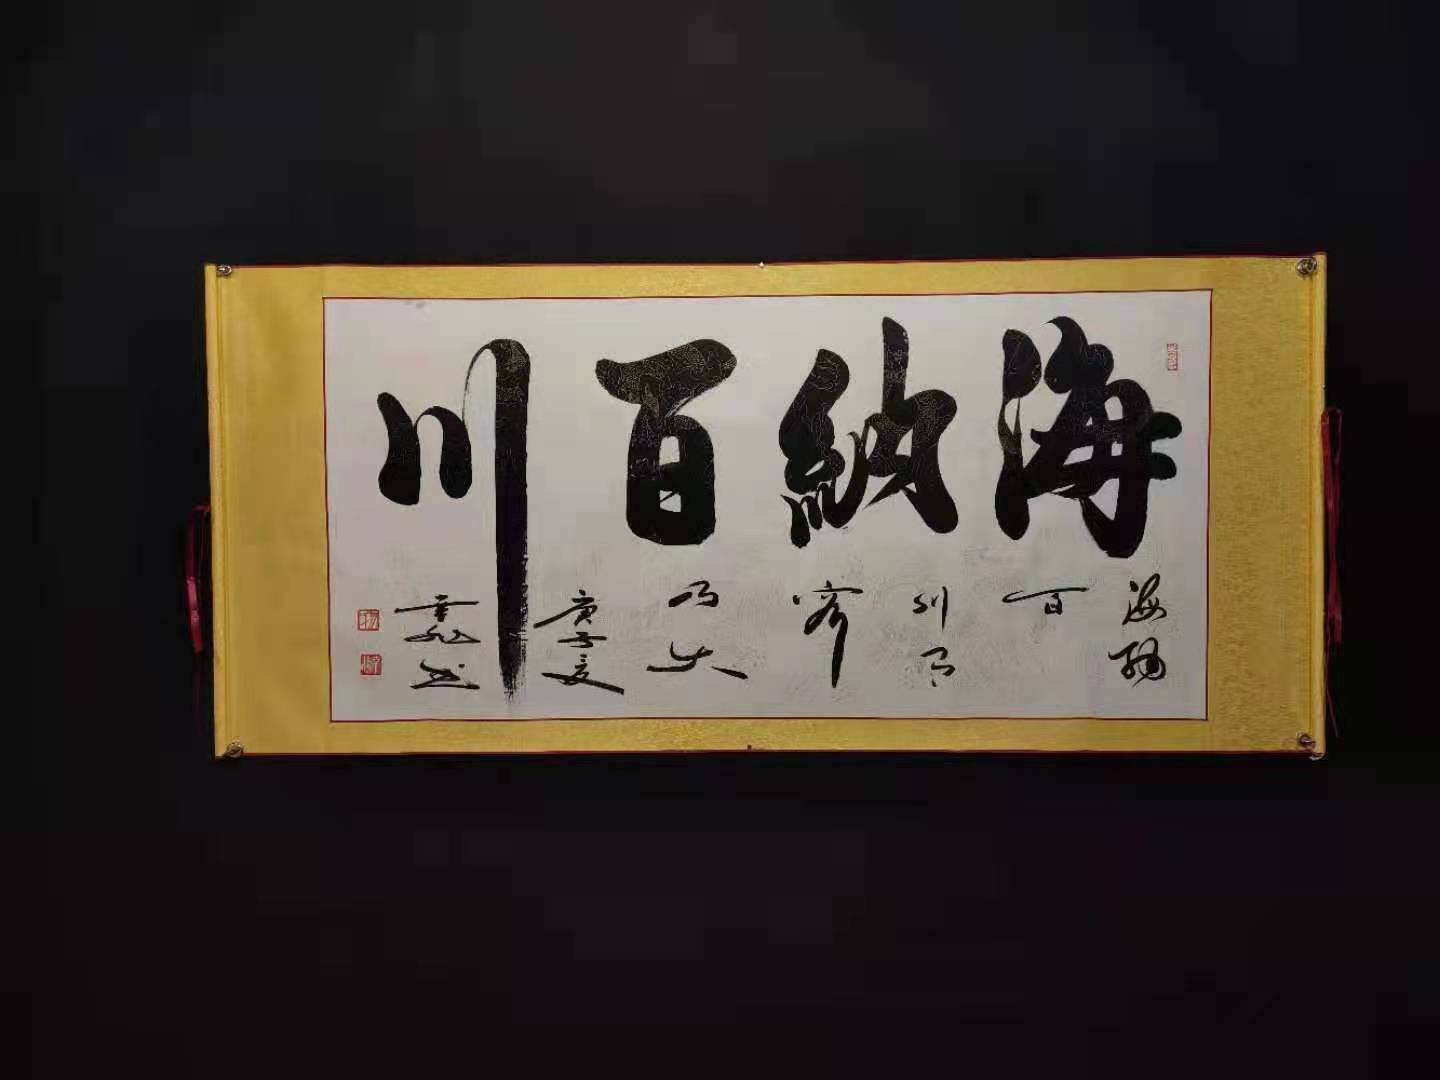 海納百川
海納
百
川有
容
乃大
庚子夏
书